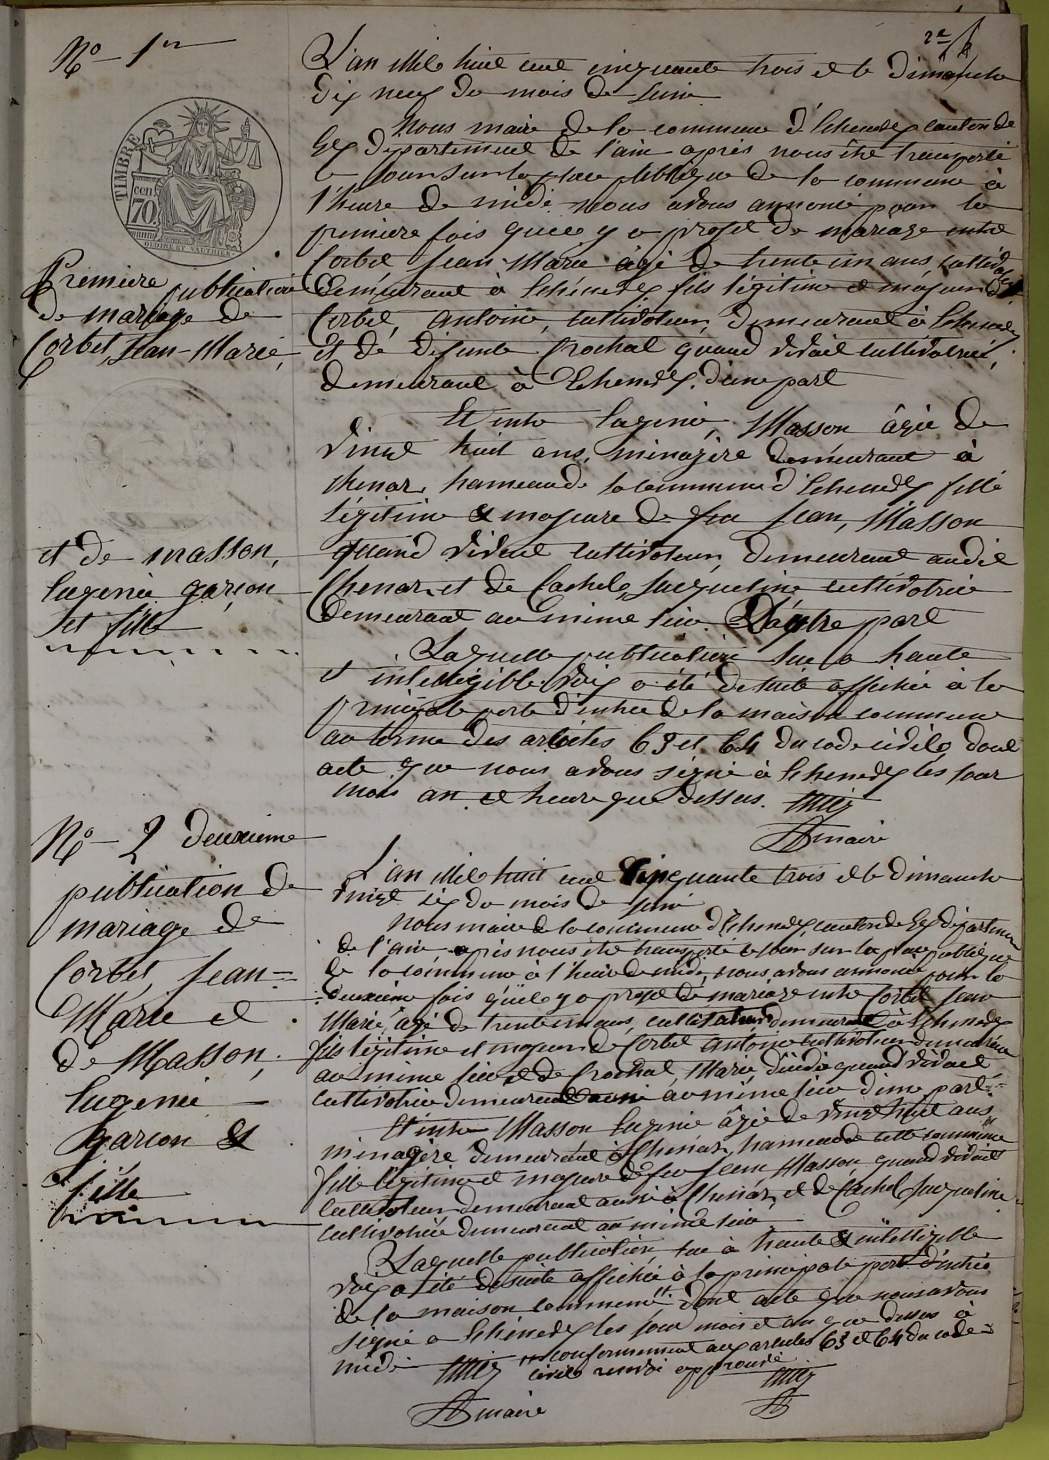 2e
N° 1er
L'an mile huit cent cinquante trois et le dimanche
dix neuf du mois de Juin
Nous maire de la commune d'Echenevex canton de
Gex département de l'ain après nous ètre transporté
le jour sur la place publique de la commune à
l'heure de midi nous avons annoncé pour la
première fois qu'il y a projet de mariage entre
Corbet Jean-Marie âgé de trente un ans, cultivateur
demeurant à Echenevex fils légitime et majeur de
Corbet, antoine, cultivateur, demeurant à Echenevex
Et de défunte Crochat quand vivait cultivatrice,
demeurant à Echenevex. d'une part
TIMBRE
cen
70
Première publication
de mariage de
Corbet, Jean-Marie,
Et entre Eugenie, Masson âgée de
vingt huit ans, ménagère demeurant à
chenaz, hameau de la commune d'Echenevex fille
légitime & majeure de feu Jean, Masson
quand vivait cultivateur, demeurant audit
Chenaz et de Cachet, Jacqueline cultivatrice
demeurant au même lieu. D'autre part
et de masson,
Eugenie garçon
et fille
Laquelle publication lue a haute
et intelligible voix a été de suite affichée à la
principale porte d'entrée de la maison commune
au terme des articles 63 et 64 du code civile, dont
acte que nous avons signé à Echenevex les jour
mois an et heure que dessus.
maire
N° 2 deuxieme
publication de
mariage de
Corbet, Jean-
Marie et
de Masson,
Eugenie
garcon &
fille
L'an mile huit cent cinquante trois et le dimanche
vingt six du mois de Juin
Nous maire de la commune d'Echenevex canton de Gex département
de l'ain, après nous ètre transporté le jour sur la place publique
de la commune à l'heure de midi, nous avons annoncé pour la
deuxième fois qu'il y a projet de mariage entre Corbet Jean
Marie, âgé de trente un ans, cultivateur demeurant à Echenevex
fils légitime et majeur de Corbet antoine cultivateur demeurant
au même lieu et de Crochat, Marie quand vivait
cultivatrice demeurant au même lieu d'une part
Et entre Masson Eugenie âgée de vingt huit ans
ménagère demeurant à Chenaz, hameau de cette commune
fille légitime et majeure de feu Jean Masson quand vivait
cultivateur demeurant aussi à Chenaz, et de Cachet Jacqueline
cultivatrice demeurant au même lieu
Laquelle publication lue à haute & intelligible
voix a été desuite affichée à la principale porte d'entrée
de la maison commune dont acte que nous avons
signé a Echenevex les jour mois et an que dessus à
midi
conformement aux articles 63 et 64 du code
civile renvoi approuvé
maire